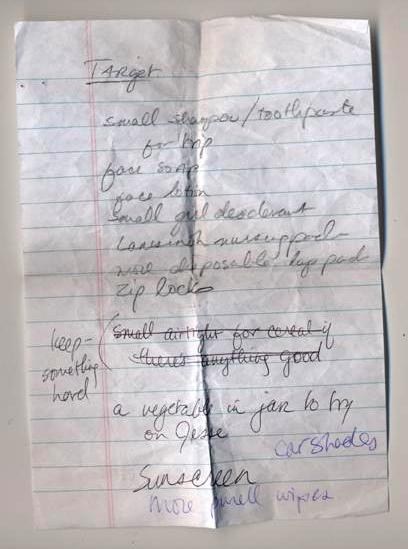 Target
small shampoo/toothpaste
for trip
face soap
face lotion
small gel deoderant
Lansinoh nursing pads
more disposable lap pads
zip locks
small airtight for cereal if
there's anything good
keep-
something
hard
a vegetable in jar to try
on Jesse
car shades
Sunscreen
more small wipes